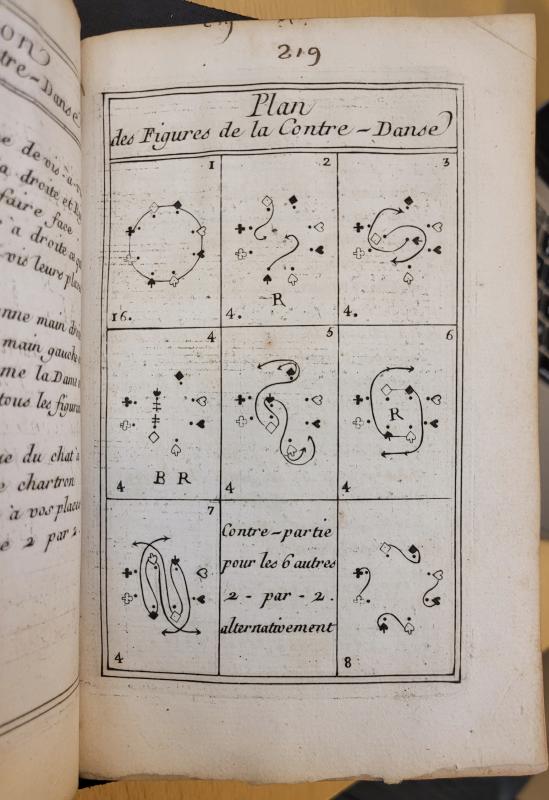 219
Plan
des Figures de la Contre-Danse
1
16.
2
4.
R
3
4.
4
4
B R
5
4
6
R
4
7
4
Contre-partie
pour les 6 autres
2 - par - 2.
alternativement
8
tre-Danse
e de vis-à-v
a droite et
faire face
a droite
vis leurs place
nne main
main gauche
me la Dame
tous les figura
ue du chat à
e chartron
à vos places
e 2 par 2.